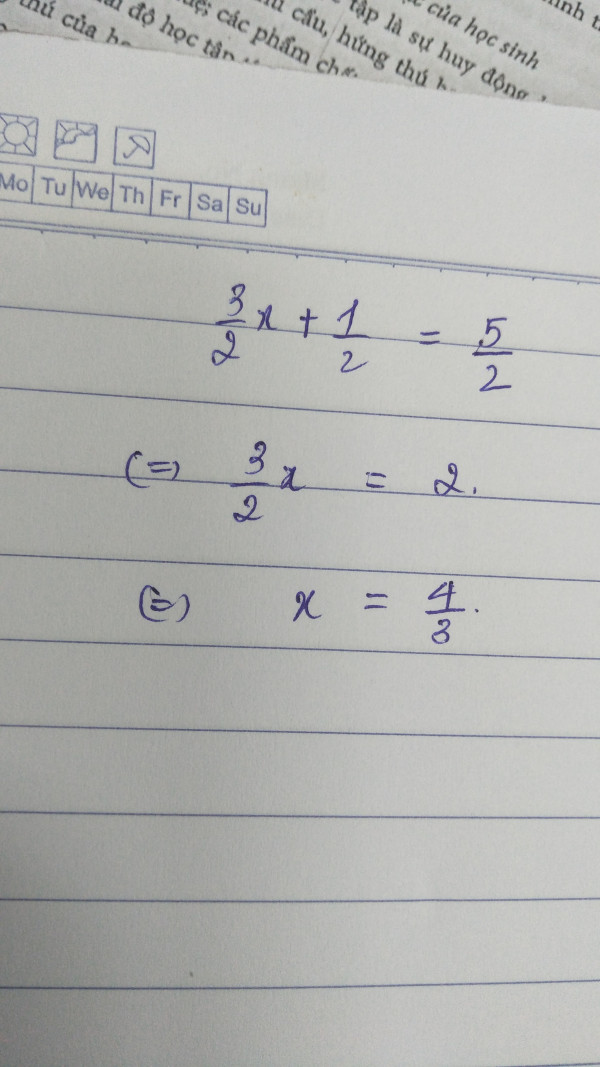 của học sinh
tập là sự huy động
cầu, hứng thú
các phẩm
độ học tập
thú của
Mo Tu We Th Fr Sa Su
3/2 x + 1/2 = 5/2
(=) 3/2 x = 2.
(=) x = 4/3.